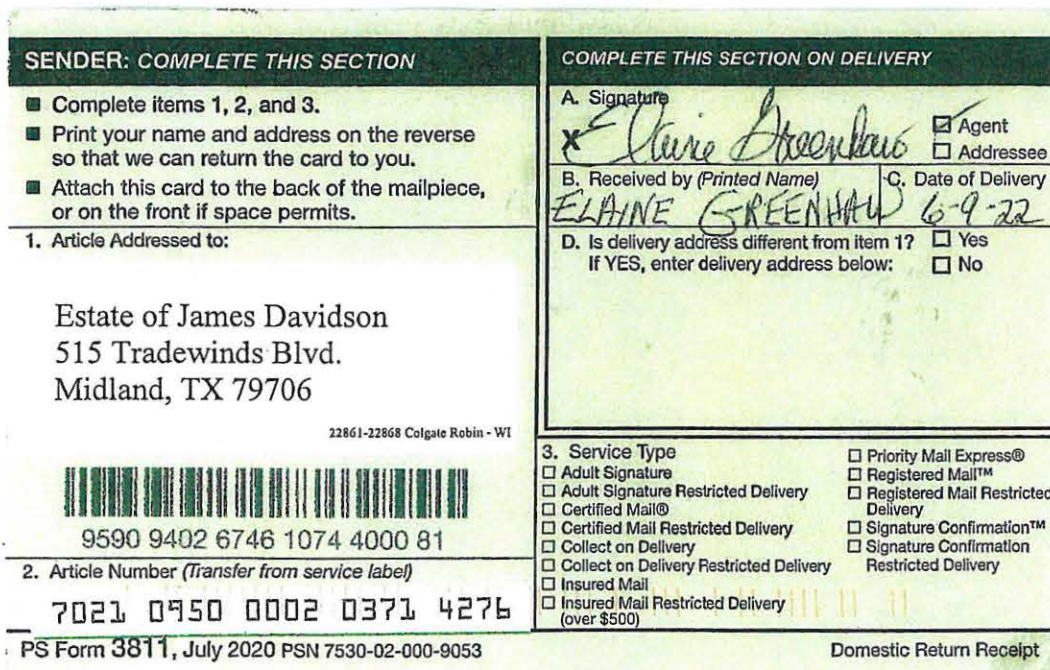 SENDER: COMPLETE THIS SECTION
■ Complete items 1, 2, and 3.
■ Print your name and address on the reverse
so that we can return the card to you.
■ Attach this card to the back of the mailpiece,
or on the front if space permits.
1. Article Addressed to:
Estate of James Davidson
515 Tradewinds Blvd.
Midland, TX 79706
22861-22868 Colgate Robin - WI
9590 9402 6746 1074 4000 81
2. Article Number (Transfer from service label)
7021 0950 0002 0371 4276
COMPLETE THIS SECTION ON DELIVERY
A. Signature
X Elaine Greenhaw
☑ Agent
☐ Addressee
B. Received by (Printed Name)
ELAINE GREENHAW
C. Date of Delivery
6-9-22
D. Is delivery address different from item 1? ☐ Yes
If YES, enter delivery address below: ☐ No
3. Service Type
☐ Adult Signature
☐ Adult Signature Restricted Delivery
☐ Certified Mail®
☐ Certified Mail Restricted Delivery
☐ Collect on Delivery
☐ Collect on Delivery Restricted Delivery
☐ Insured Mail
☐ Insured Mail Restricted Delivery
(over $500)
☐ Priority Mail Express®
☐ Registered Mail™
☐ Registered Mail Restricted
Delivery
☐ Signature Confirmation™
☐ Signature Confirmation
Restricted Delivery
PS Form 3811, July 2020 PSN 7530-02-000-9053
Domestic Return Receipt